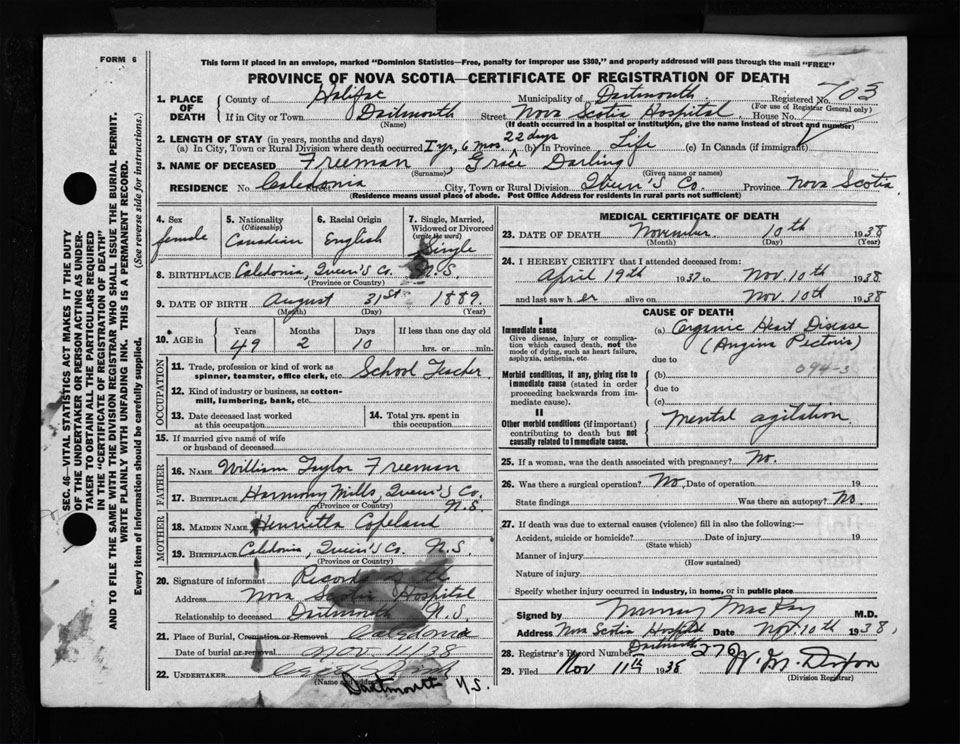 FORM 6
This form if placed in an envelope, marked "Dominion Statistics—Free, penalty for improper use $300," and properly addressed will pass through the mail "FREE"
PROVINCE OF NOVA SCOTIA—CERTIFICATE OF REGISTRATION OF DEATH
1. PLACE OF DEATH
County of Halifax Municipality of Dartmouth Registered No. 703
(For use of Registrar General only)
If in City or Town Dartmouth Street Nova Scotia Hospital House No.
(Name) (If death occurred in a hospital or institution, give the name instead of street and number)
2. LENGTH OF STAY (in years, months and days)
(a) In City, Town or Rural Division where death occurred 1 yr, 6 mos. 22 days (b) In Province Life (c) In Canada (if immigrant)
3. NAME OF DECEASED Freeman, Grace Darling
(Surname) (Given name or names)
RESIDENCE No. Caledonia Street, City, Town or Rural Division Queen's Co. Province Nova Scotia
(Residence means usual place of abode. Post Office Address for residents in rural parts not sufficient)
4. Sex female
5. Nationality (Citizenship) Canadian
6. Racial Origin English
7. Single, Married, Widowed or Divorced (write the word) Single
8. BIRTHPLACE Caledonia, Queen's Co. N.S.
(Province or Country)
9. DATE OF BIRTH August 31st 1889.
(Month) (Day) (Year)
10. AGE in Years Months Days If less than one day old
49 2 10 hrs. or min.
OCCUPATION
11. Trade, profession or kind of work as spinner, teamster, office clerk, etc. School Teacher
12. Kind of industry or business, as cotton-mill, lumbering, bank, etc.
13. Date deceased last worked at this occupation
14. Total yrs. spent in this occupation
15. If married give name of wife or husband of deceased
FATHER
16. NAME William Taylor Freeman
17. BIRTHPLACE Harmony Mills, Queen's Co. N.S.
(Province or Country)
MOTHER
18. MAIDEN NAME Henrietta Copeland
19. BIRTHPLACE Caledonia, Queen's Co. N.S.
(Province or Country)
20. Signature of informant Records
Address Nova Scotia Hospital
Relationship to deceased Dartmouth N.S.
21. Place of Burial, Cremation or Removal Caledonia
Date of burial or removal Nov. 11/38
22. UNDERTAKER
(Name and Address)
Dartmouth N.S.
MEDICAL CERTIFICATE OF DEATH
23. DATE OF DEATH November 10th 1938
(Month) (Day) (Year)
24. I HEREBY CERTIFY that I attended deceased from:
April 19th 1937 to Nov. 10th 1938
and last saw her alive on Nov. 10th 1938
CAUSE OF DEATH
I
Immediate cause
Give disease, injury or complication which caused death, not the mode of dying, such as heart failure, asphyxia, asthenia, etc.
(a) Organic Heart Disease
(Angina Pectoris)
due to
094-3
Morbid conditions, if any, giving rise to immediate cause (stated in order proceeding backwards from immediate cause).
(b)
due to
(c)
II
Other morbid conditions (if important) contributing to death but not causally related to immediate cause.
Mental agitation
25. If a woman, was the death associated with pregnancy? No.
26. Was there a surgical operation? No. Date of operation 19
State findings Was there an autopsy? No
27. If death was due to external causes (violence) fill in also the following:—
Accident, suicide or homicide? Date of injury 19
(State which)
Manner of injury
(How sustained)
Nature of injury
Specify whether injury occurred in industry, in home, or in public place
Signed by Murray MacKay M.D.
Address Nova Scotia Hospital Date Nov. 10th 1938
Dartmouth
28. Registrar's Record Number 272
29. Filed Nov 11th 1938 W. M. Dixon
(Division Registrar)
SEC. 46—VITAL STATISTICS ACT MAKES IT THE DUTY
OF THE UNDERTAKER OR PERSON ACTING AS UNDER-
TAKER TO OBTAIN ALL THE PARTICULARS REQUIRED
IN THE "CERTIFICATE OF REGISTRATION OF DEATH"
AND TO FILE THE SAME WITH THE DIVISION REGISTRAR WHO SHALL ISSUE THE BURIAL PERMIT.
WRITE PLAINLY WITH UNFADING INK. THIS IS A PERMANENT RECORD.
Every item of Information should be carefully supplied. (See reverse side for instructions.)